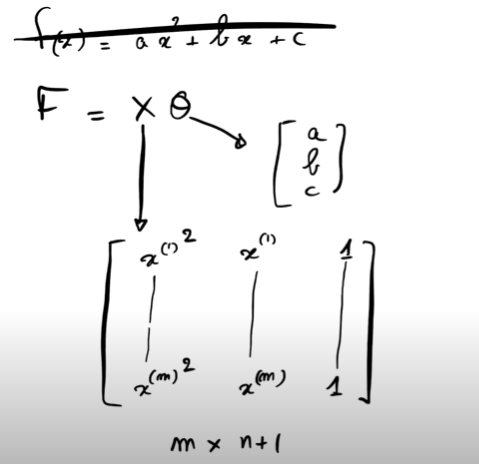 f(x) = ax² + bx + c
F = X θ
[ a
b
c ]
[ x⁽¹⁾² x⁽¹⁾ 1
x⁽ᵐ⁾² x⁽ᵐ⁾ 1 ]
m x n+1